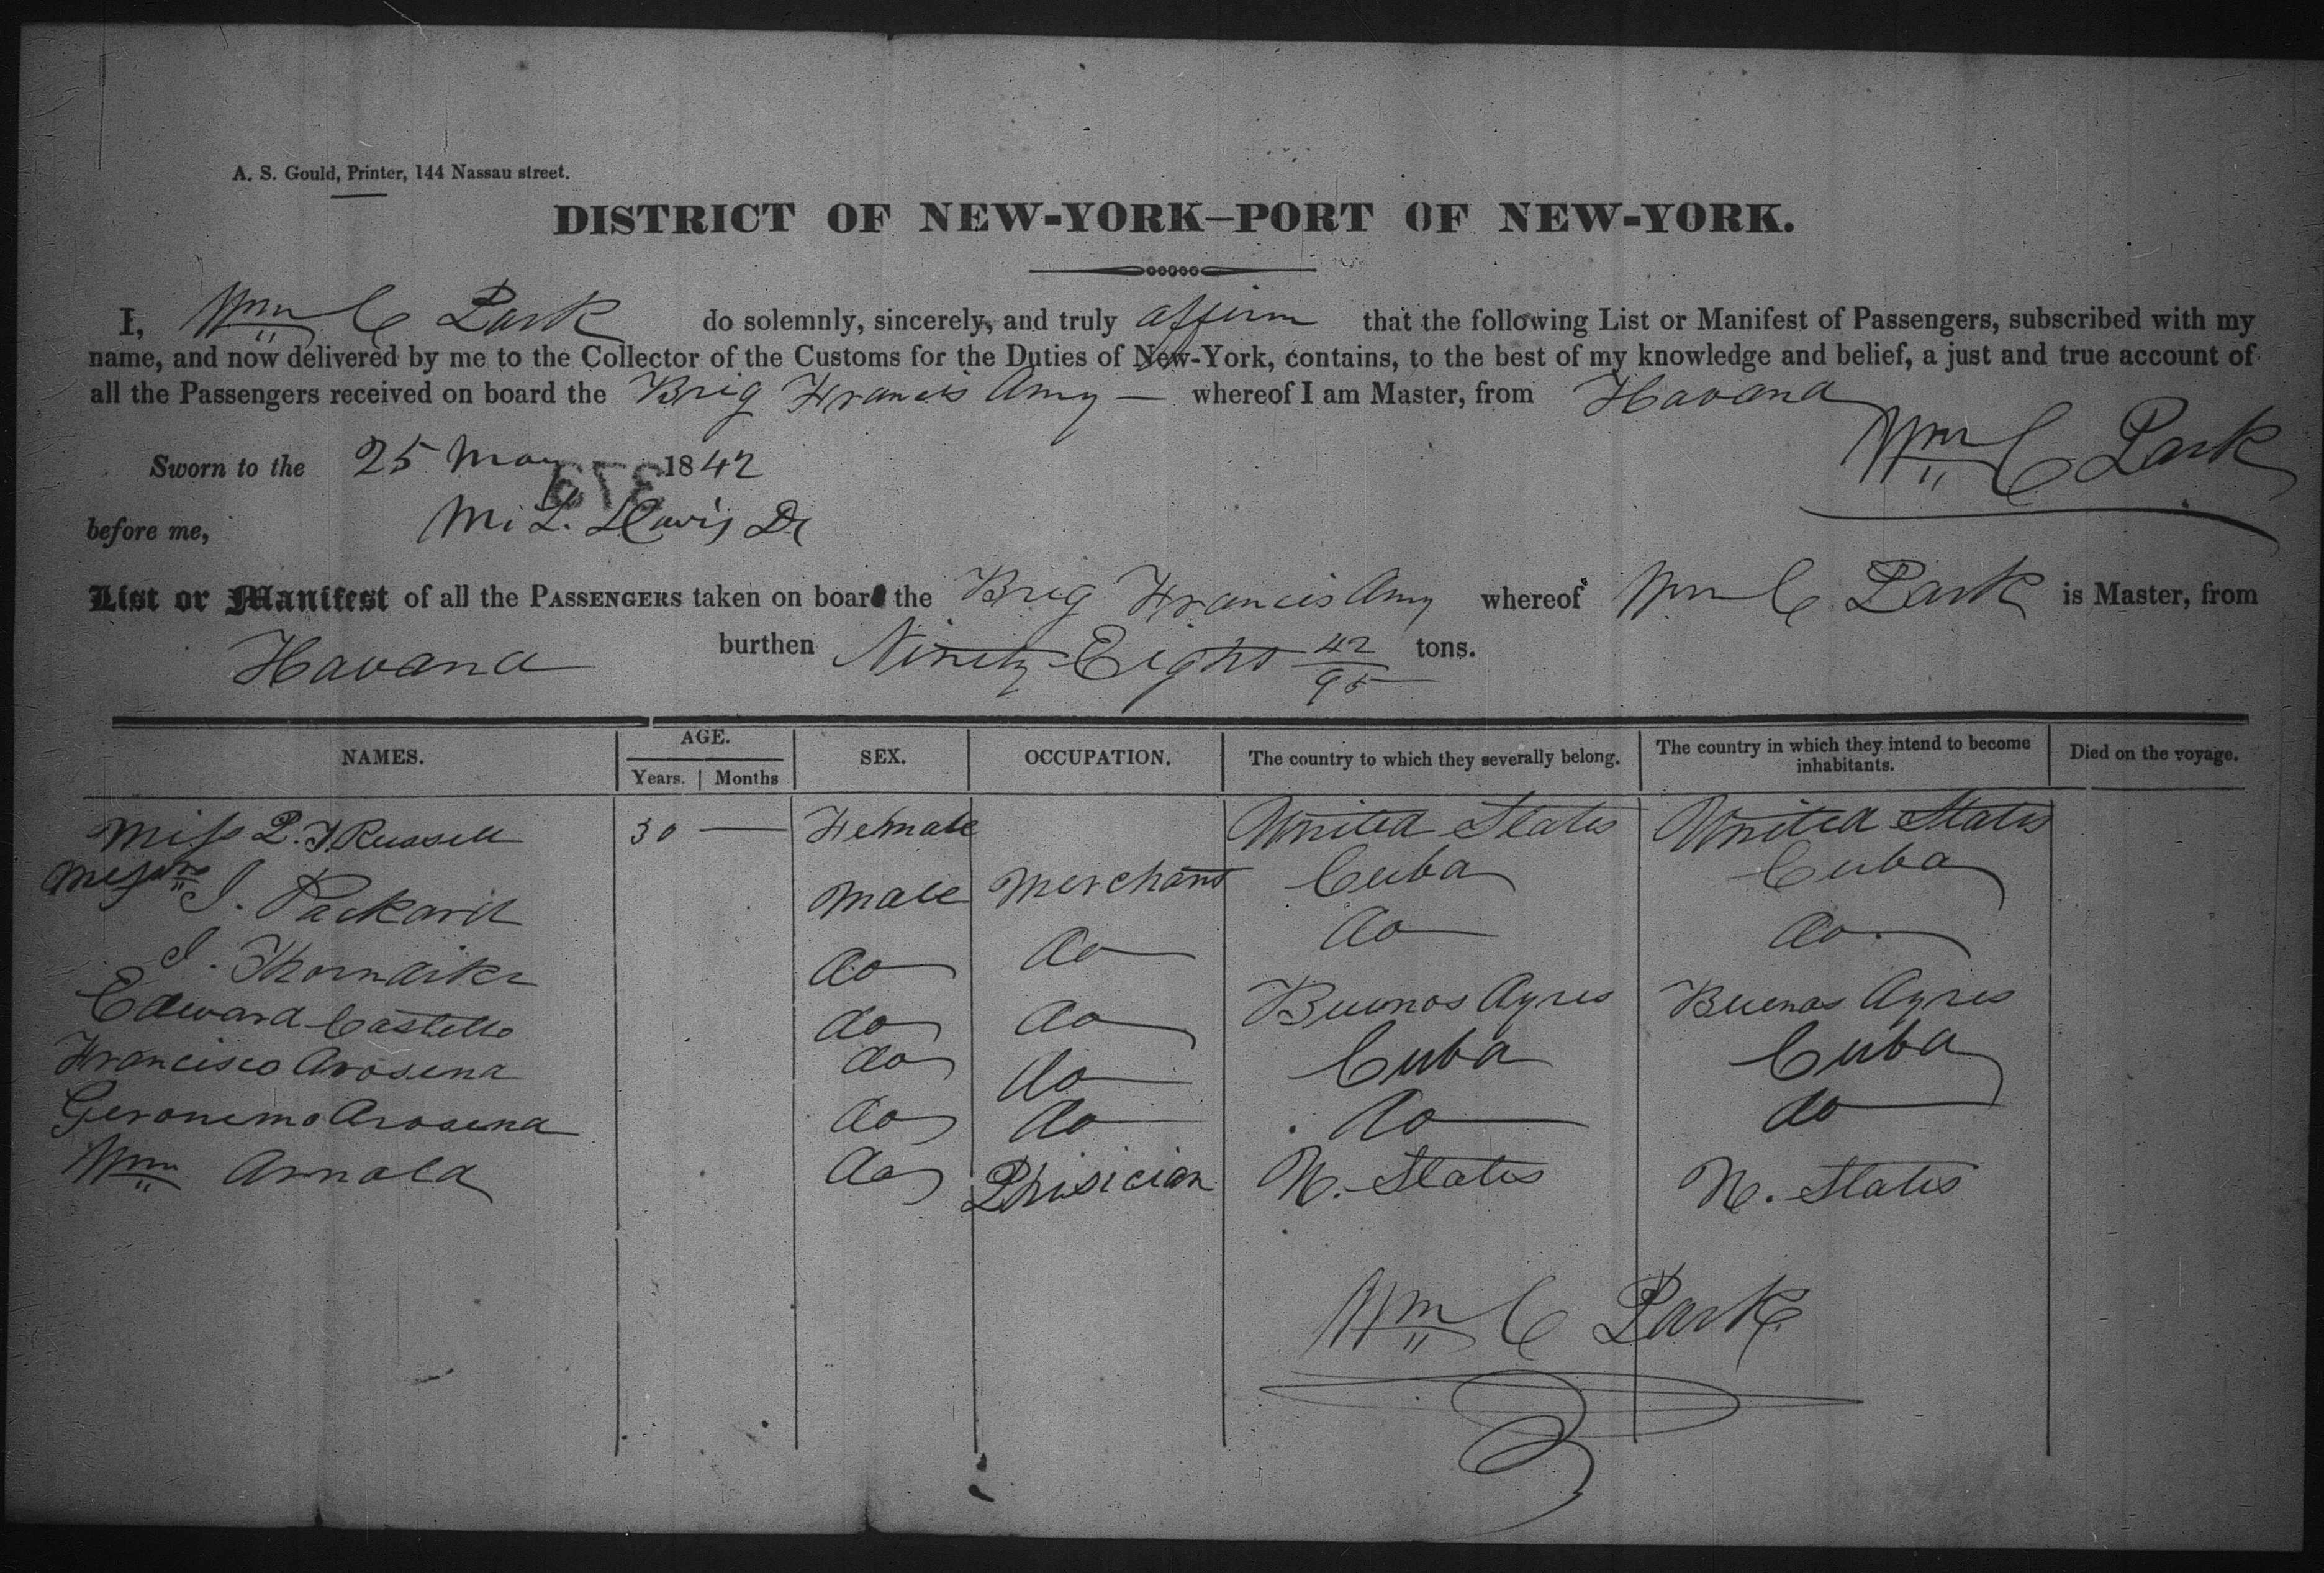 A. S. Gould, Printer, 144 Nassau street.
DISTRICT OF NEW-YORK—PORT OF NEW-YORK.
I, Wm C Park do solemnly, sincerely, and truly affirm that the following List or Manifest of Passengers, subscribed with my
name, and now delivered by me to the Collector of the Customs for the Duties of New-York, contains, to the best of my knowledge and belief, a just and true account of
all the Passengers received on board the Brig Francis Amy — whereof I am Master, from Havana
Wm C Park
Sworn to the 25 May 1842
before me,
List or Manifest of all the PASSENGERS taken on board the Brig Francis Amy whereof Wm C Park is Master, from
Havana burthen Ninety Eight 42/95 tons.
NAMES. AGE. Years. Months SEX. OCCUPATION. The country to which they severally belong. The country in which they intend to become inhabitants. Died on the voyage.
Miss P. T Russell 30 — Female United States United States
Messrs J. Packard Male Merchant Cuba Cuba
J. Thorndike do do do do
Edward Castello do do Buenos Ayres Buenos Ayres
Francisco Arosena do do Cuba Cuba
Geronimo Arosena do do do do
Wm Arnold do Phisician U. States U. States
Wm C Park